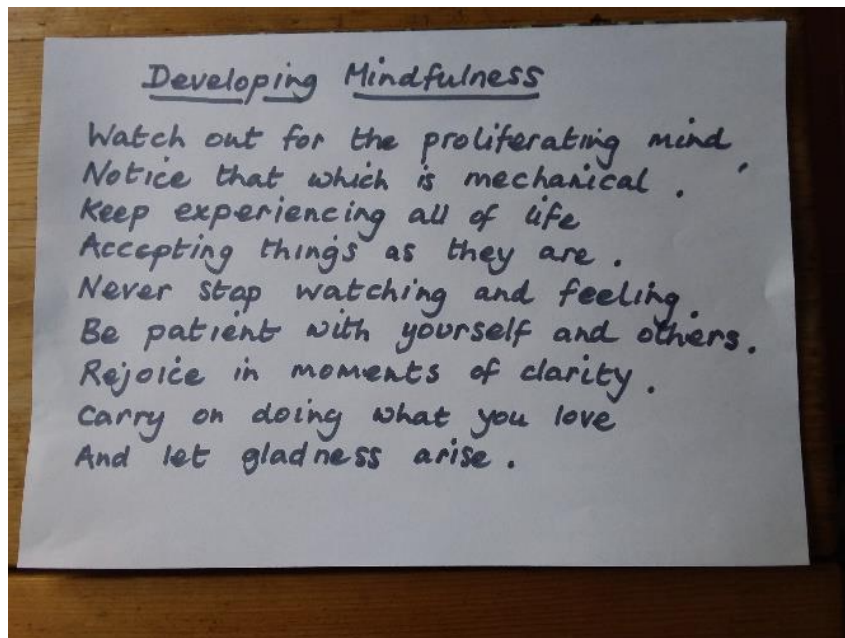 Developing Mindfulness
Watch out for the proliferating mind,
Notice that which is mechanical.
Keep experiencing all of life
Accepting things as they are.
Never stop watching and feeling.
Be patient with yourself and others.
Rejoice in moments of clarity.
Carry on doing what you love
And let gladness arise.